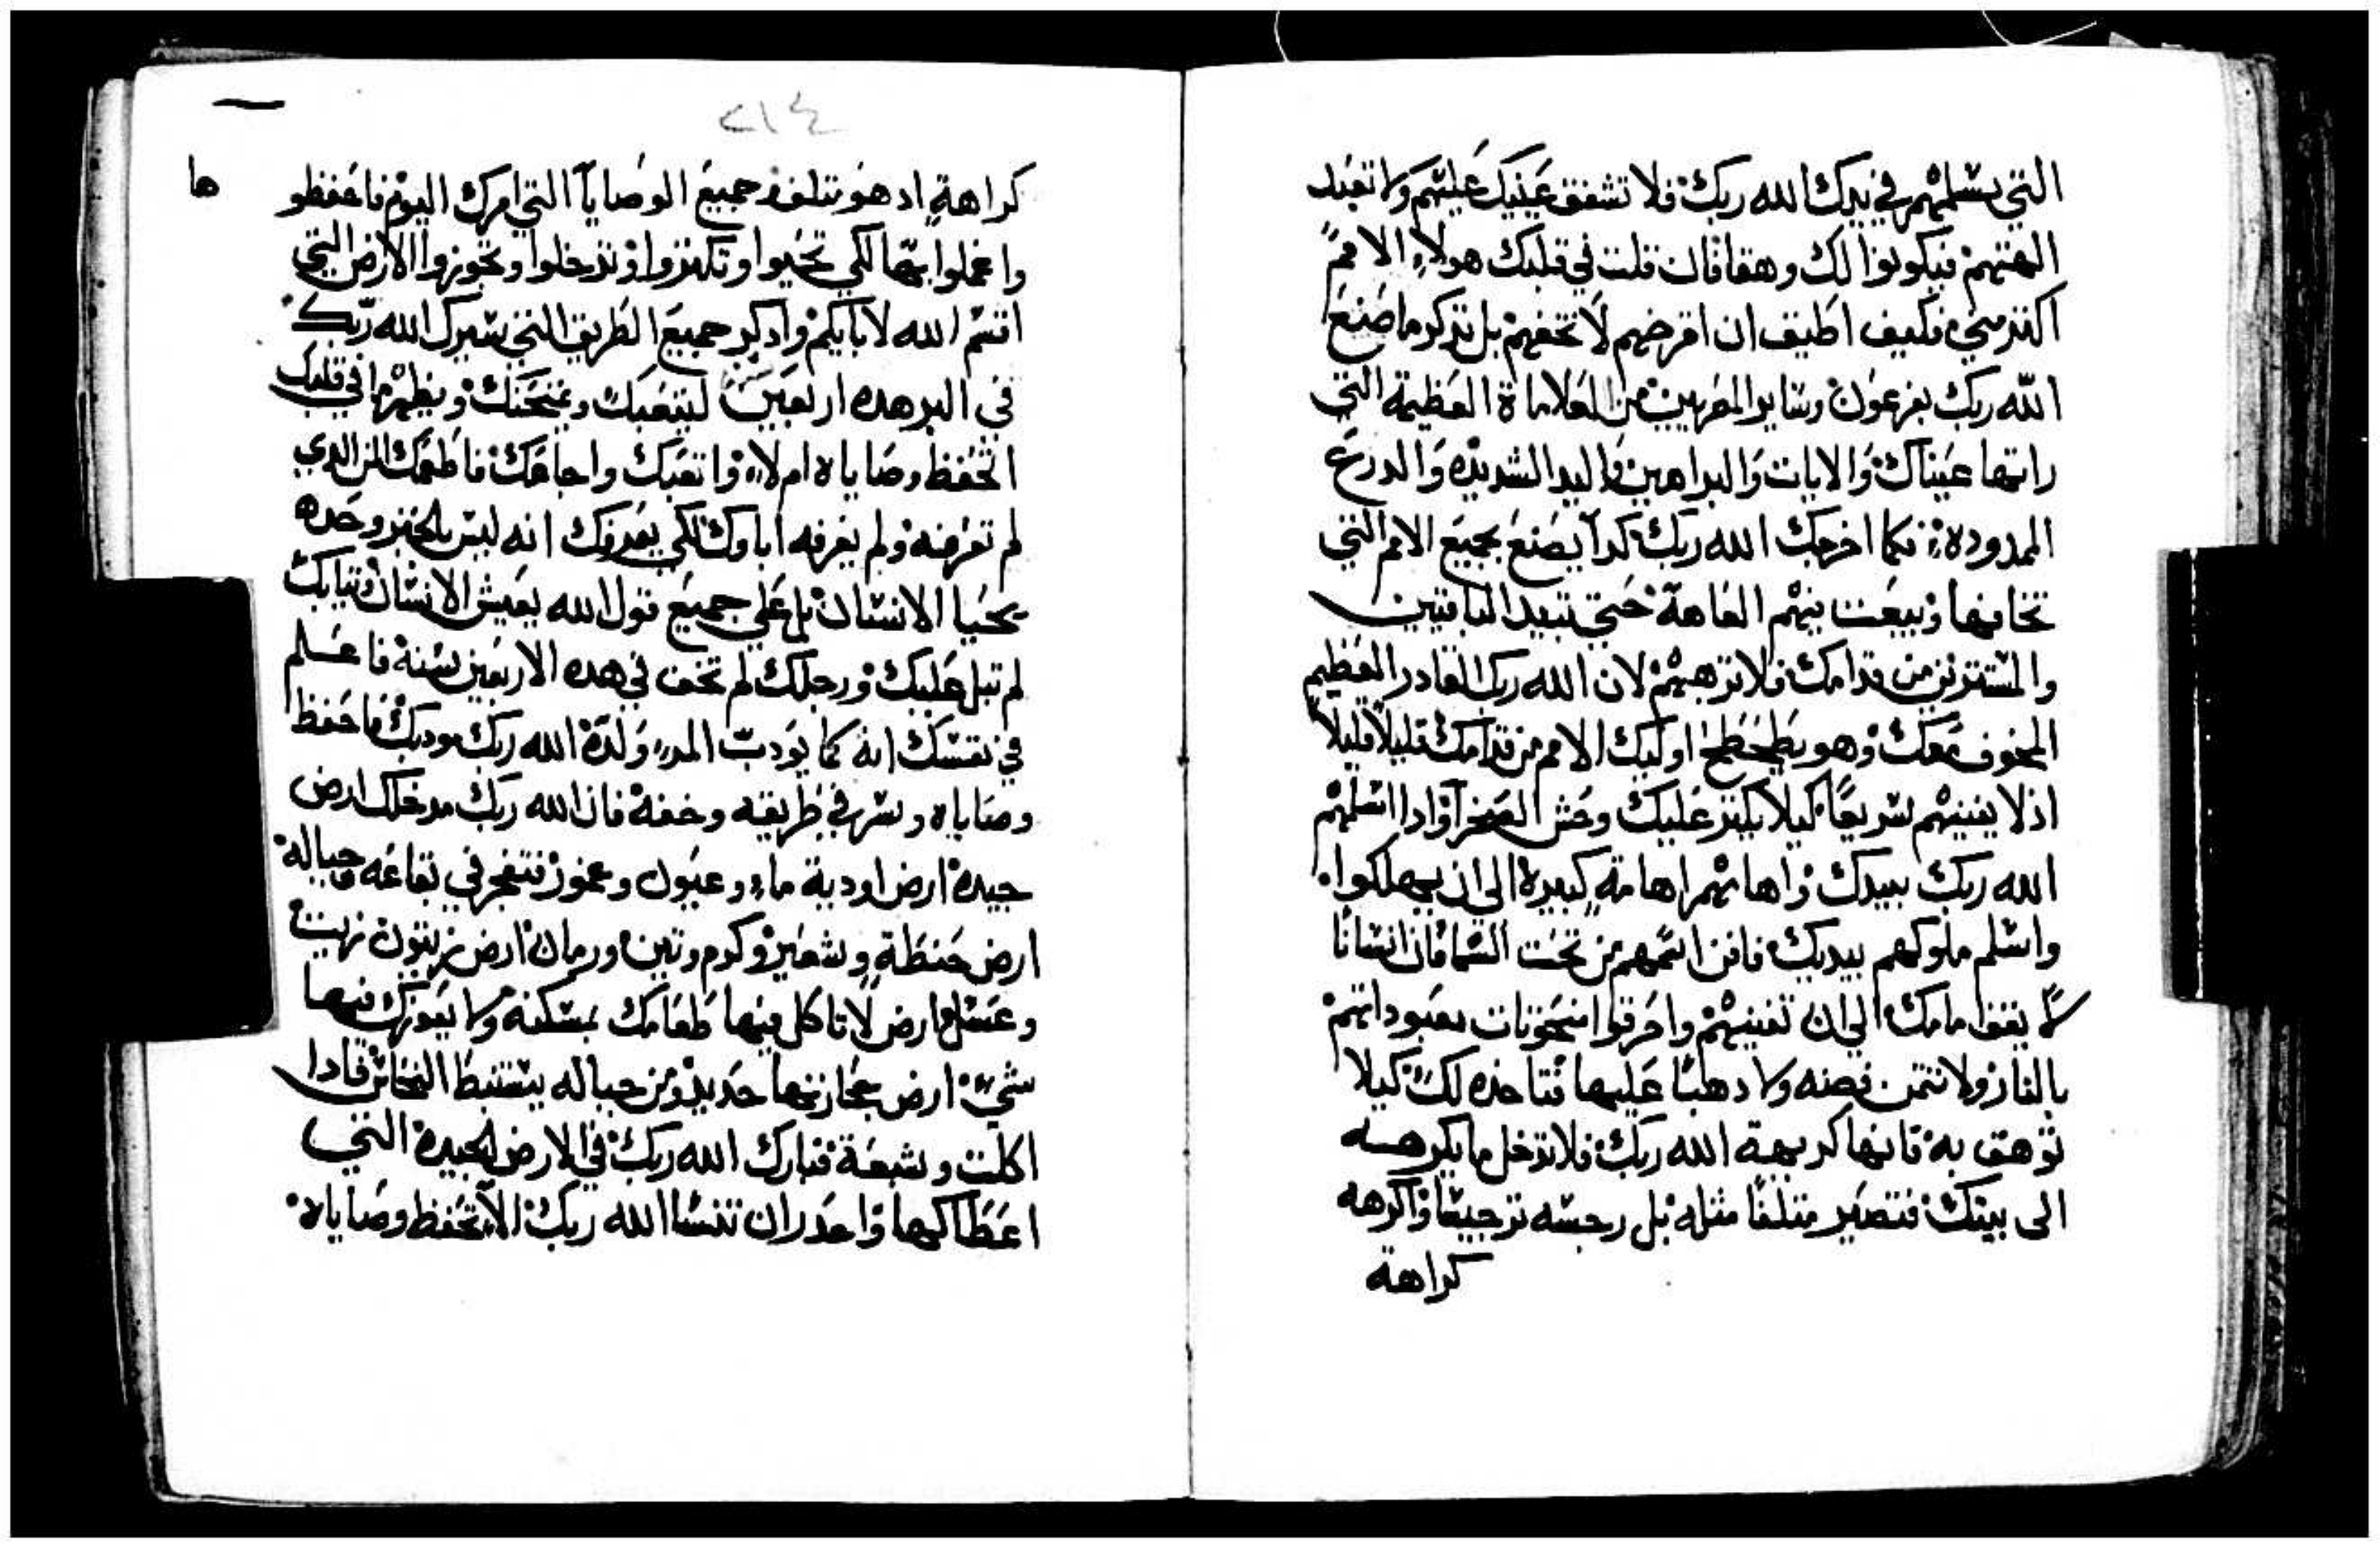 التي يسلمهم في يدك الله ربك فلا تشفق عينيك عليهم ولا تعبد
الهتهم فيكونوا لك وهقا فان قلت في قلبك هولاء الامم
اكثر مني فكيف اطيق ان اقرضهم لا تخفهم بل تذكر ما صنع
الله ربك بفرعون وساير المصريين من العلاماة العظيمة التي
راتها عيناك والايات والبراهين واليد الشديده والدرع
الممدوده فكما اخرجك الله ربك كدا يصنع بجميع الامم التي
تخافها ويبعت بينهم العاهة حتي تبيد الباقيين
والمستترين من قدامك فلا ترهبهم لان الله ربك القادر العظيم
المخوف معك وهو يطحطح اوليك الامم من قدامك قليلا قليلا
اذ لا يفنيهم سريعا كيلا يكثر عليك وحش الصحرا وادا اسلمهم
الله ربك بيدك واهانهم اهانة كبيرة الي ان يهلكوا
واسلم ملوكهم بيديك فافن اسمهم من تحت السما فان انسانا
لا يقف امامك الي ان تفنيهم واحرقوا منحوتات معبوداتهم
بالنار ولا تتمن فضه ولا دهبا عليها فتاخذه لك كيلا
توهق به فانها كريهة الله ربك فلا تدخل ما يكرهه
الى بيتك فتصير متلفا مثله بل رجسه ترجيسا واكرهه
كراهة
٢١٤
كراهة اد هو متلف جميع الوصايا التي امرك اليوم فاحفظو
ها
واعملوا بها لكي تحيوا وتكثروا وتدخلوا وتحوزوا الارض التي
اقسم الله لابايكم وادكر جميع الطريق التي سيرك الله ربك
في البر هده اربعين سنة ليتعبك ويمتحنك ويظهر ما في قلبك
اتحفظ وصاياه ام لا واتعبك واجاعك فاطعمك المن الدي
لم تعرفه ولم يعرفه اباوك لكي يعرفك انه ليس بالخبز وحده
يحيا الانسان بل علي جميع قول الله يعيش الانسان وتيابك
لم تبل عليك ورجلك لم تحف في هده الاربعين سنة فاعلم
في نفسك انه كما يودب المرء ولده الله ربك مودبك فاحفظ
وصاياه وسر في طريقه وخفه فان الله ربك مدخلك ارض
جيده ارض اودية ماء وعيون وغموز تتفجر في بقاعه وجباله
ارض حنطة وشعير وكرم وتين ورمان ارض زيتون زيت
وعسل ارض لا تاكل فيها طعامك بمسكنه ولا يعوزك فيها
شيء ارض حجارتها حديد ومن جباله يستنبط النحاس فادا
اكلت وشبعة فبارك الله ربك في الارض الجيدة التي
اعطاكها واحدر ان تنسا الله ربك الا تحفظ وصاياه